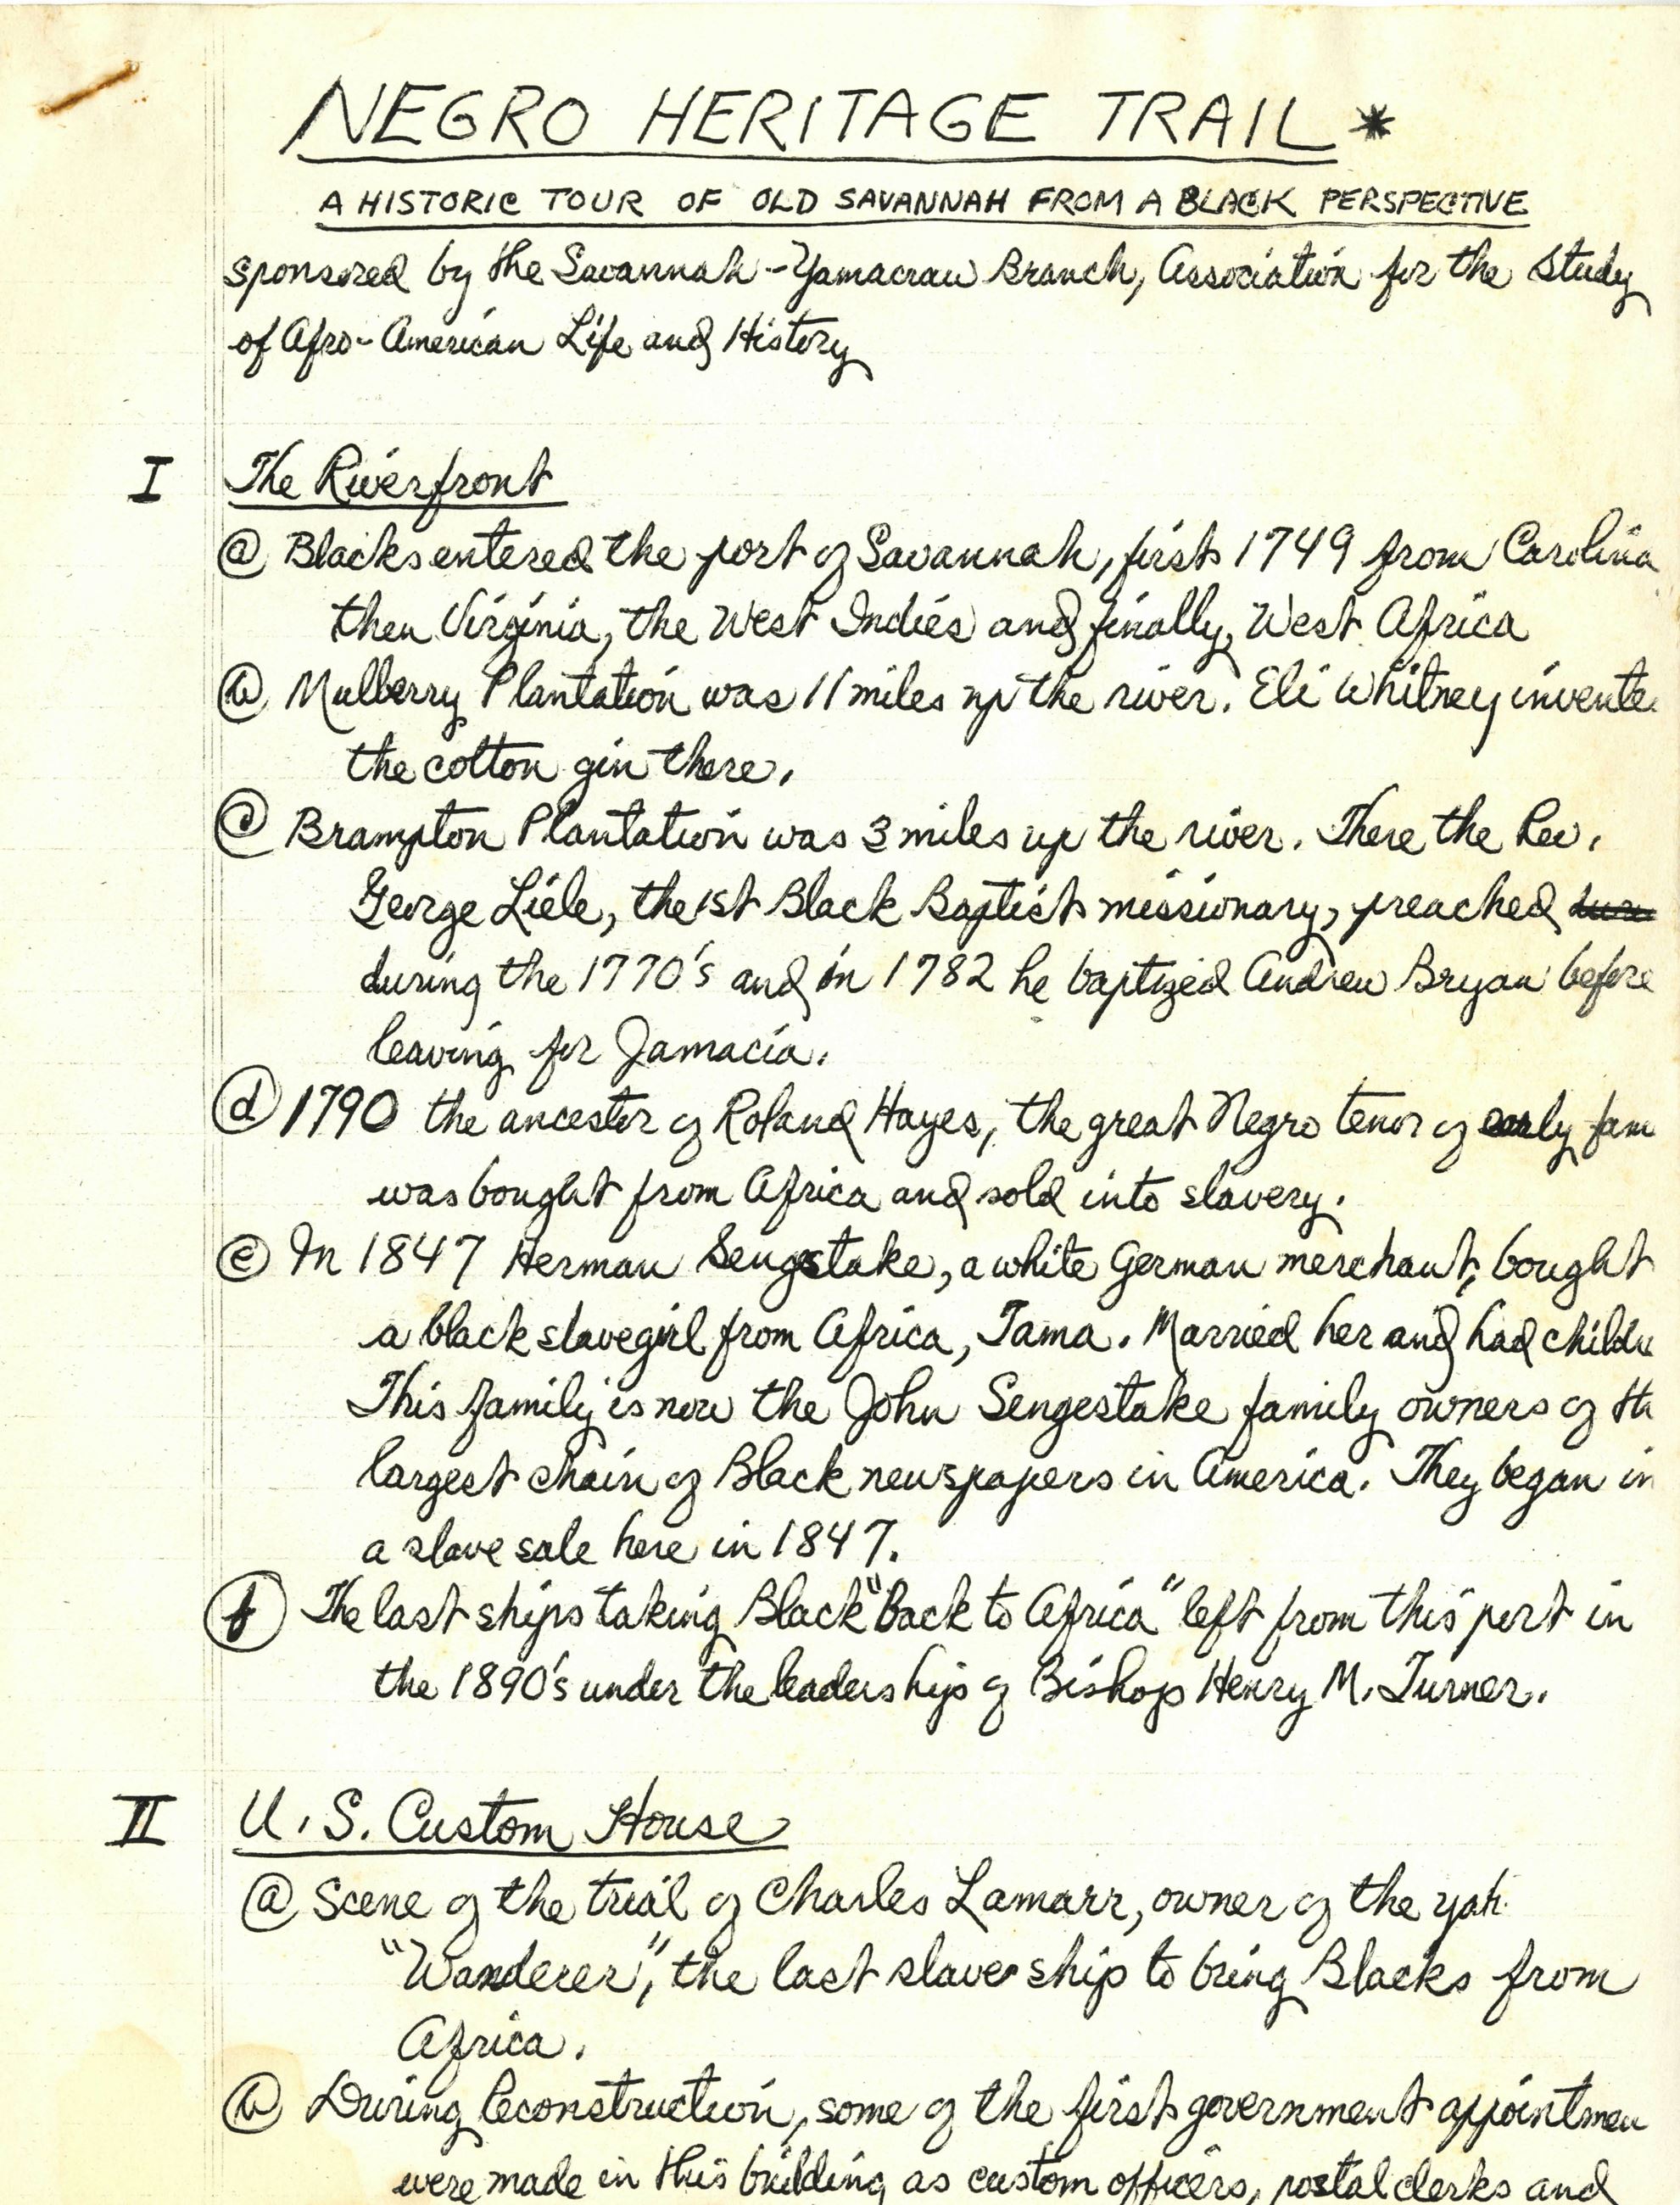 NEGRO HERITAGE TRAIL *
A HISTORIC TOUR OF OLD SAVANNAH FROM A BLACK PERSPECTIVE
sponsored by the Savannah-Yamacraw Branch, Association for the Study
of Afro-American Life and History
I The Riverfront
(a) Blacks entered the port of Savannah, first 1749 from Carolina
then Virginia, the West Indies and finally, West Africa
(b) Mulberry Plantation was 11 miles up the river. Eli Whitney invente
the cotton gin there.
(c) Brampton Plantation was 3 miles up the river. There the Rev.
George Liele, the 1st Black Baptist missionary, preached
during the 1770's and in 1782 he baptized Andrew Bryan before
leaving for Jamacia.
(d) 1790 the ancester of Roland Hayes, the great Negro tenor of early fam
was bought from Africa and sold into slavery.
(e) In 1847 Herman Sengstake, a white German merchant, bought
a black slavegirl from Africa, Tama. Married her and had childre
This family is now the John Sengestake family owners of th
largest chain of Black newspapers in America. They began in
a slave sale here in 1847.
(f) The last ships taking Black "Back to Africa" left from this port in
the 1890's under the leadership of Bishop Henry M. Turner.
II U.S. Custom House
(a) Scene of the trial of Charles Lamarr, owner of the
"Wanderer", the last slave ship to bring Blacks from
Africa.
(b) During Reconstruction, some of the first government appointmen
were made in this building as custom officers, postal clerks and